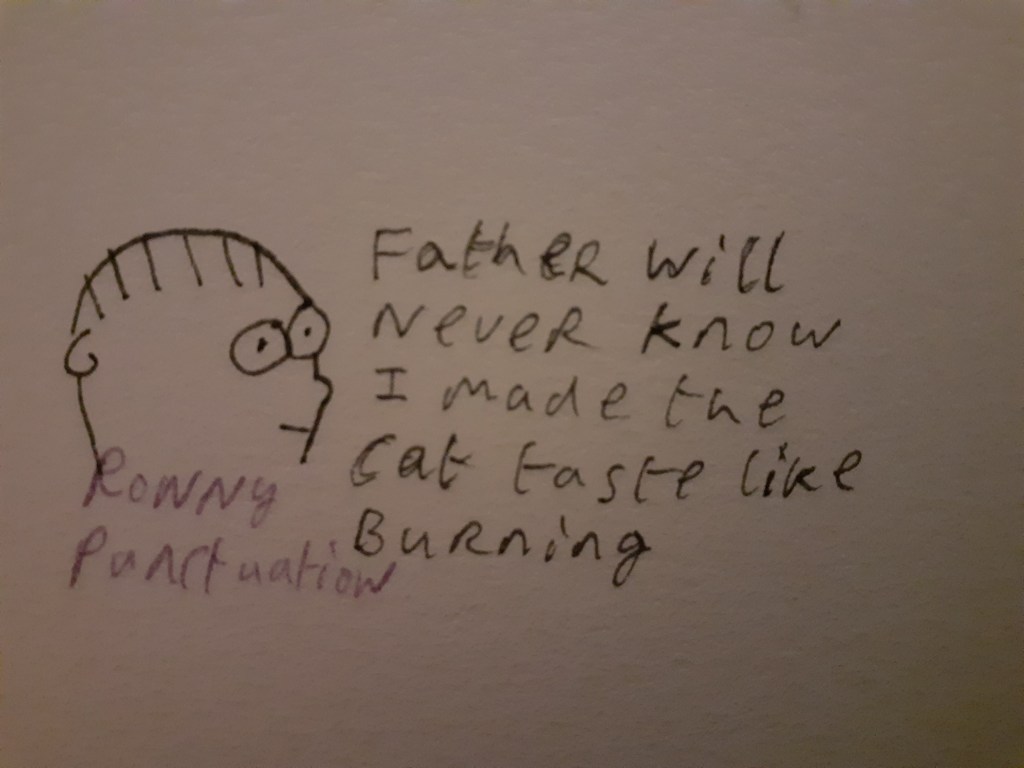 Father will
Never know
I made the
Cat taste like
Burning
Ronny
Punctuation